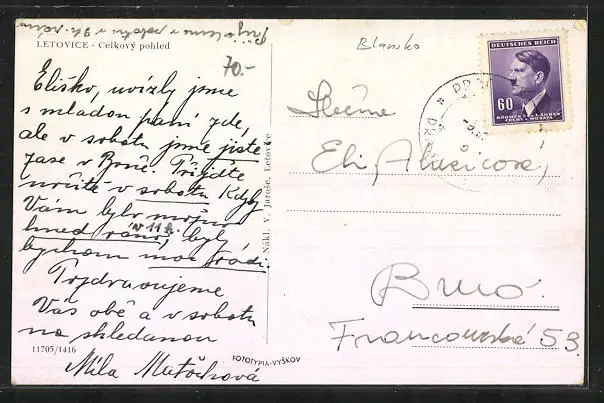 v sobotu v 9 h. ráno
LETOVICE - Celkový pohled
70.-
Blansko
Eliško, uvízly jsme
s mladou paní zde,
ale v sobotu jsme jistě
zase v Brně. Přijďte
určitě v sobotu. Kdyby
Vám bylo možno
hned ráno, byly
v 11 h.
bychom moc rády.
Pozdravujeme
Vás obě a v sobotu
na shledanou
Míla Matošková
11705/1416
FOTOTYPIA-VYŠKOV
Nákl. V. Jaroše, Letovice
DEUTSCHES REICH
60
BÖHMEN U. MÄHREN
ČECHY A MORAVA
Slečna
Eli
Brno.
Francouzská 53.